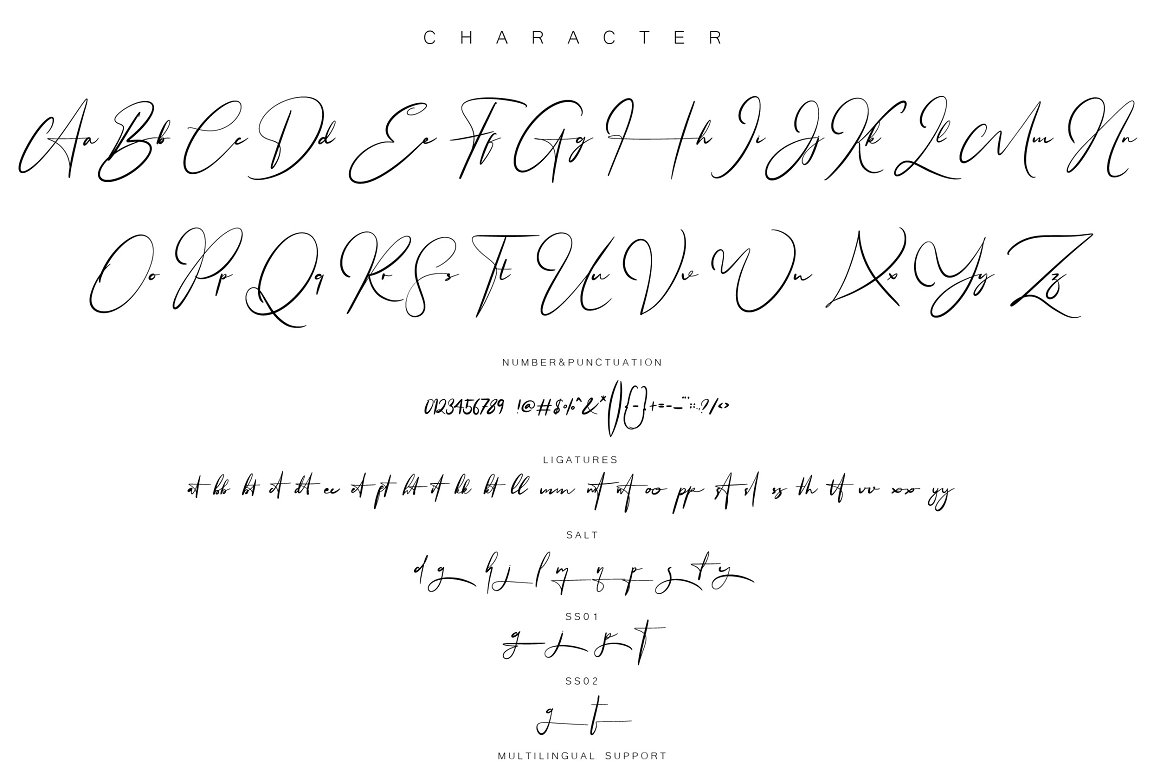 CHARACTER
Aa Bb Cc Dd Ee Ff Gg Hh Ii Jj Kk Ll Mm Nn
Oo Pp Qq Rr Ss Tt Uu Vv Ww Xx Yy Zz
NUMBER&PUNCTUATION
0123456789 !@#$%^&*(){-}+=-_
LIGATURES
at bb bt ct dt ee et ft ht it kk kt ll mm nt oo pp st sl ss th tt vv xx yy
SALT
d g h j l m n p s t y
SS01
g j p t
SS02
g t
MULTILINGUAL SUPPORT